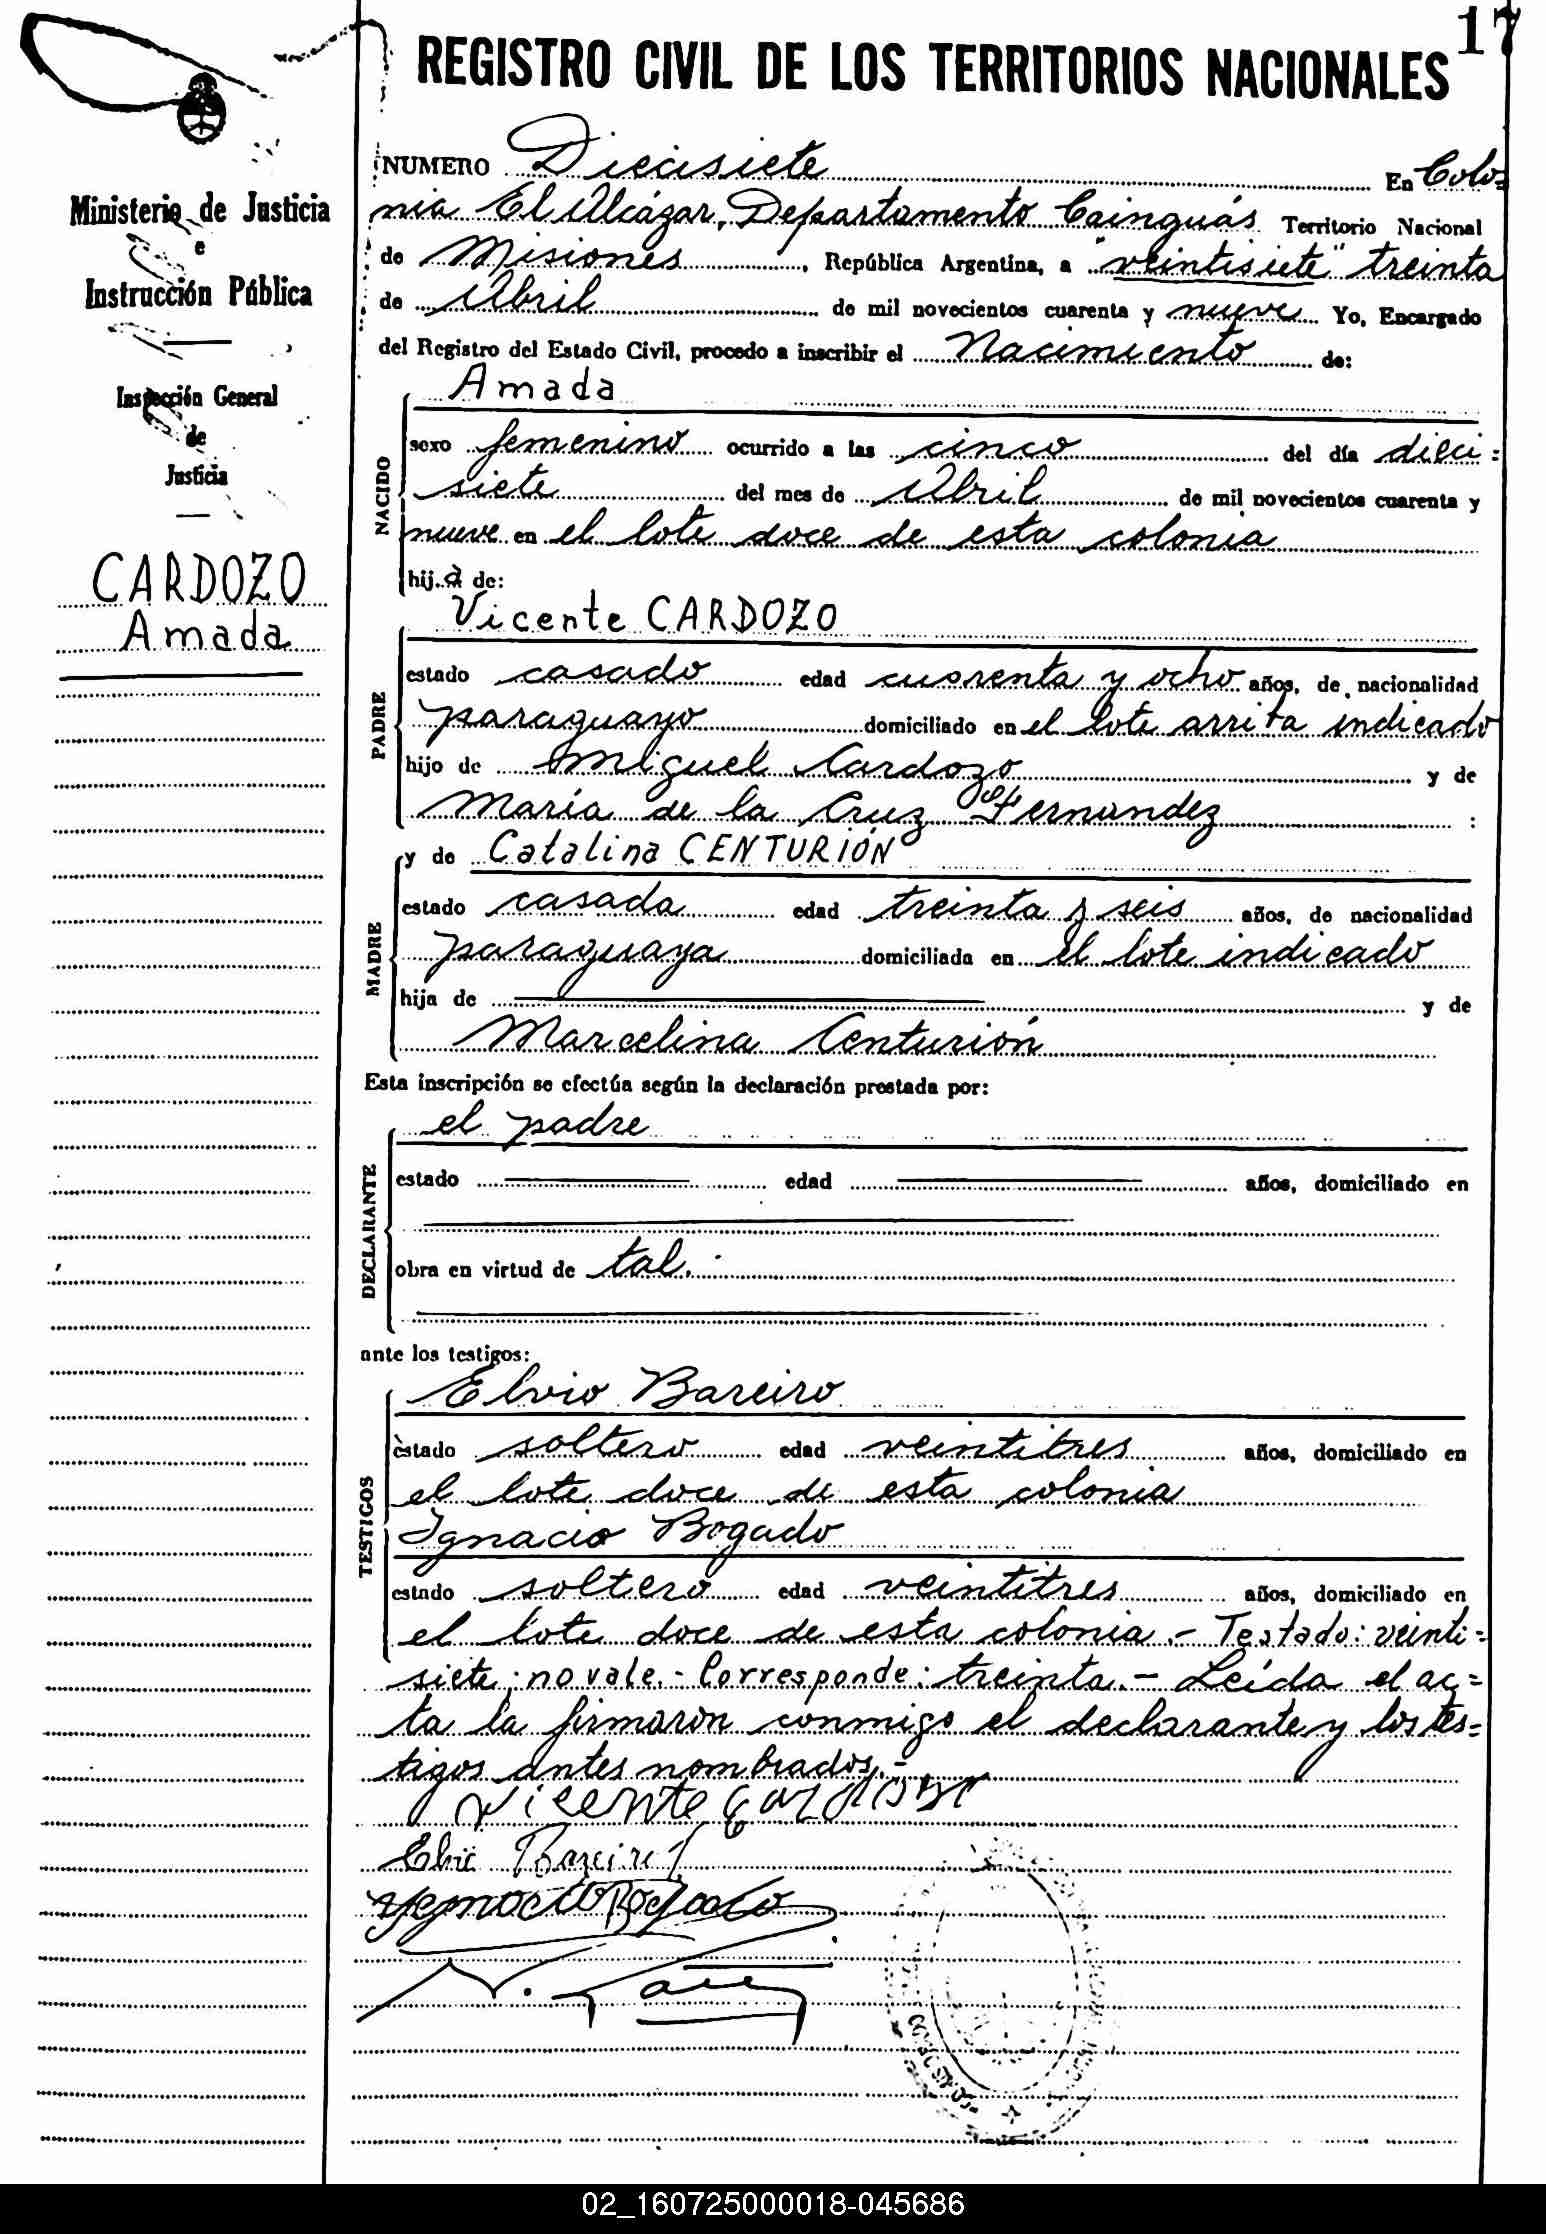 17
REGISTRO CIVIL DE LOS TERRITORIOS NACIONALES
Ministerio de Justicia
e
Instrucción Pública
Inspección General
de
Justicia
CARDOZO
Amada
NUMERO Diecisiete En Colo=
nia El Alcázar, Departamento Cainguás Territorio Nacional
de Misiones, República Argentina, a "veintisiete" treinta
de Abril de mil novecientos cuarenta y nueve Yo, Encargado
del Registro del Estado Civil, procedo a inscribir el Nacimiento de:
NACIDO
Amada
sexo femenino ocurrido a las cinco del día dieci=
siete del mes de Abril de mil novecientos cuarenta y
nueve en el lote doce de esta colonia
hij.a de:
PADRE
Vicente CARDOZO
estado casado edad cuarenta y ocho años, de nacionalidad
paraguayo domiciliado en el lote arriba indicado
hijo de Miguel Cardozo y de
María de la Cruz Fernandez
MADRE
y de Catalina CENTURIÓN
estado casada edad treinta y seis años, de nacionalidad
paraguaya domiciliada en el lote indicado
hija de y de
Marcelina Centurión
Esta inscripción se efectúa según la declaración prestada por:
DECLARANTE
el padre
estado edad años, domiciliado en
obra en virtud de tal.
ante los testigos:
TESTIGOS
Elvio Bareiro
estado soltero edad veintitres años, domiciliado en
el lote doce de esta colonia
Ignacio Bogado
estado soltero edad veintitres años, domiciliado en
el lote doce de esta colonia.- Testado: veinti=
siete: no vale.- Corresponde: treinta.- Leída el ac=
ta la firmaron conmigo el declarante y los tes=
tigos antes nombrados.-
Vicente Cardozo
Elvio Bareiro
Ygnacio Bogado
02_160725000018-045686